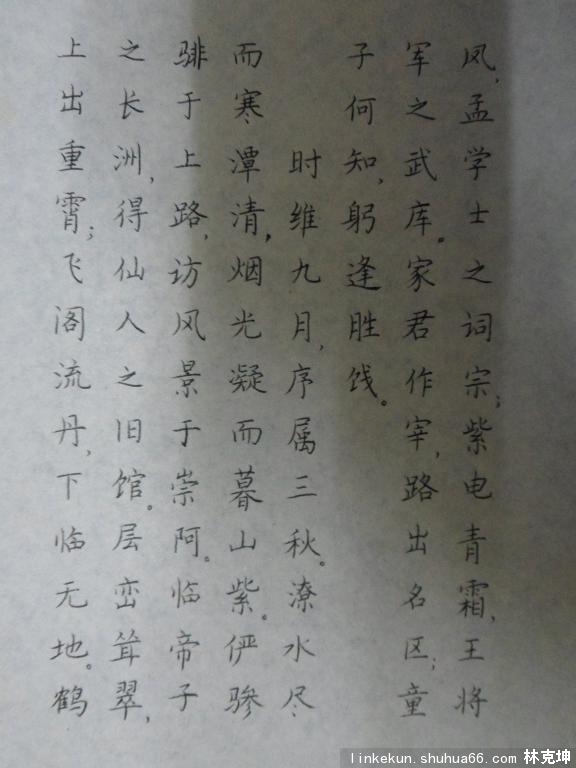 凤，孟学士之词宗；紫电青霜，王将
军之武库。家君作宰，路出名区；童
子何知，躬逢胜饯。
时维九月，序属三秋。潦水尽
而寒潭清，烟光凝而暮山紫。俨骖
騑于上路，访风景于崇阿。临帝子
之长洲，得仙人之旧馆。层峦耸翠，
上出重霄；飞阁流丹，下临无地。鹤
linkekun.shuhua66.com 林克坤